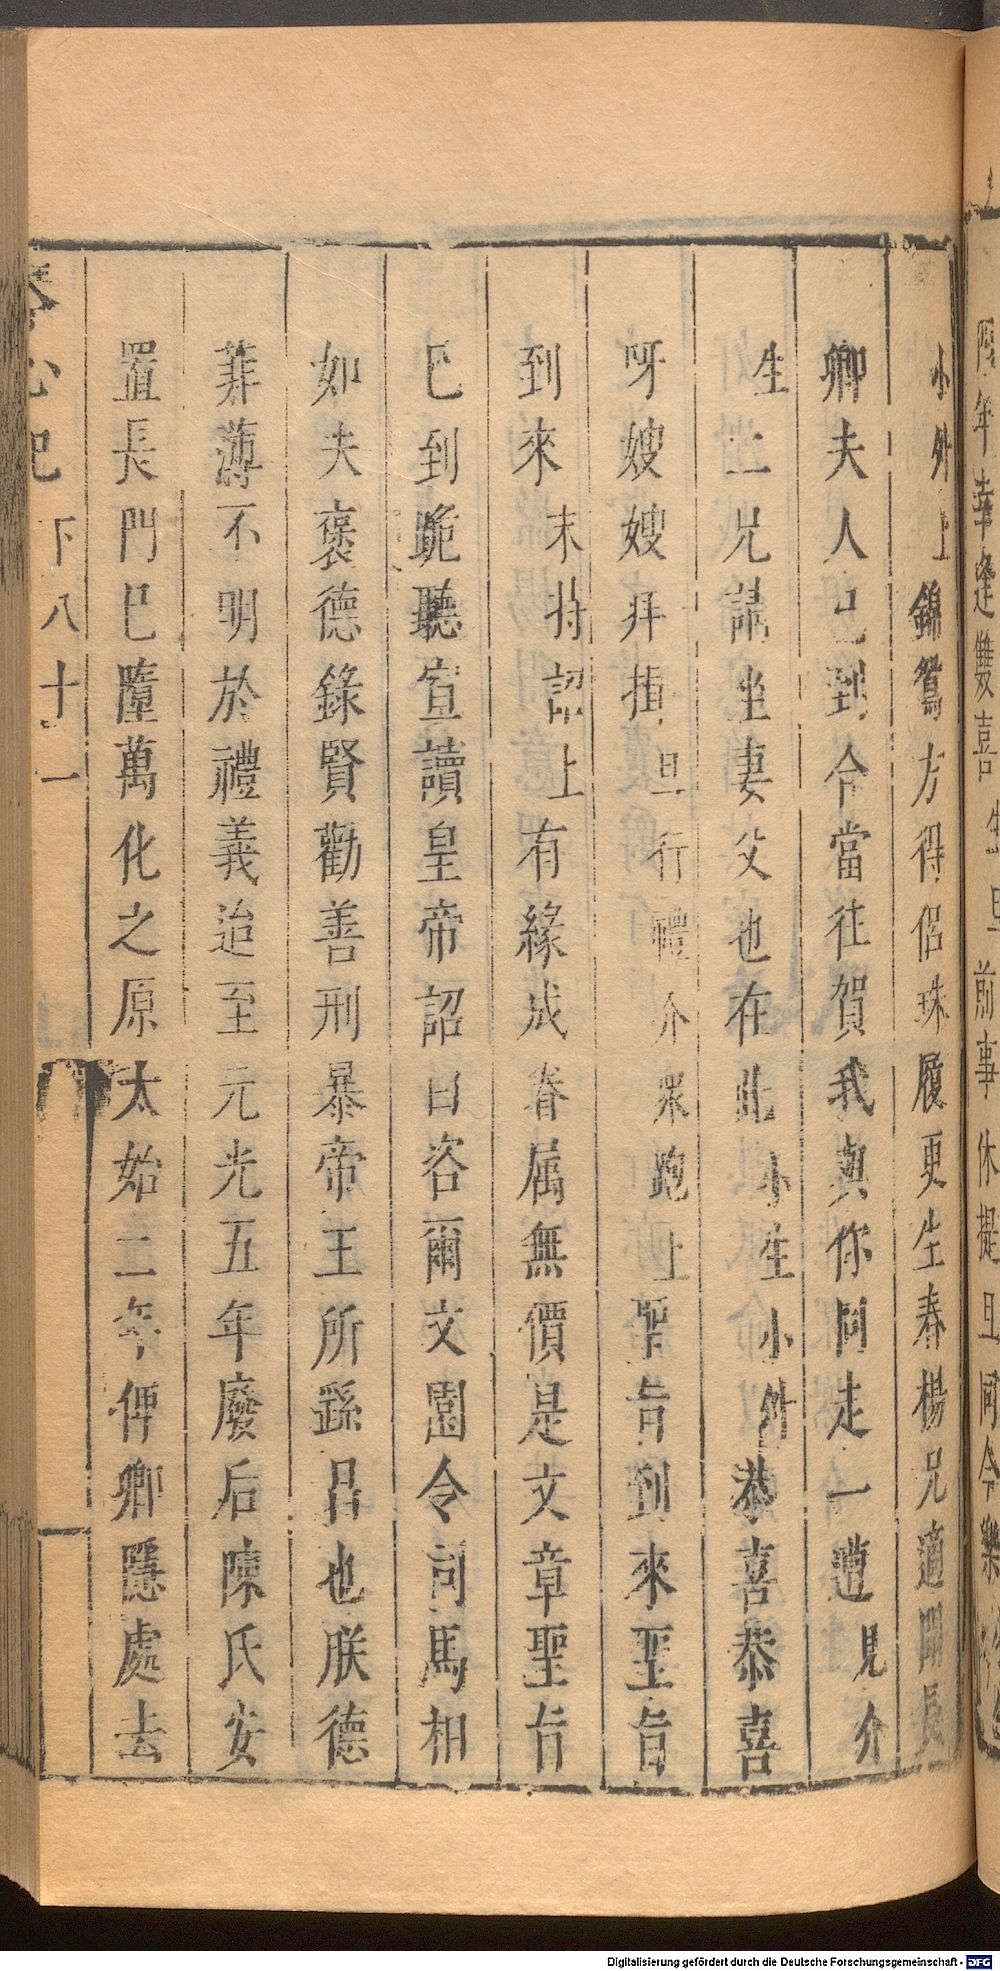 四年幸逢雙喜生旦前事休提旦同今樂
小外上錦鴛方得侶珠履更生春楊兄適聞長
卿夫人已到今當往賀我與你同走一遭見介
生二兄請坐妻父也在此小生小外恭喜恭喜
呀嫂嫂拜揖旦行禮介衆跑上聖旨到來聖旨
到來末持詔上有緣成眷属無價是文章聖旨
巳到跪聽宣讀皇帝詔曰咨爾文園令司馬相
如夫褒德錄賢勸善刑暴帝王所繇昌也朕德
菲薄不明於禮義迨至元光五年廢后陳氏安
置長門巳隳萬化之原太始二年俾卿隱處去
琴心記 下 八十一
Digitalisierung gefördert durch die Deutsche Forschungsgemeinschaft - DFG